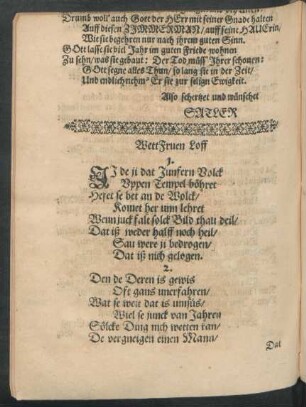 Drumb woll' auch Gott der HErr mit seiner Gnade halten
Auff diesen ZIMMERMAN / auff seine HAUErin,
Wie sie begehren nur nach ihrem guten Sinn.
GOtt lasse sie viel Jahr im guten Friede wohnen
Zu sehn / was sie gebaut: Der Tod müss' Ihrer schonen:
GOtt segne alles Thun / so lang sie in der Zeit /
Und endlich nehm' Er sie zur selign Ewigkeit.
Also schertzet und wünschet
SATLER
WettFruen Loff
1.
ji dat Junfern Volck
Uppen Tempel böhret
Hefet se bet an de Wolck /
Komet her unn lehret
Wenn juck fale solck Bild thau deil /
Dat iß weder halff noch heil /
Sau were ji bedrogen /
Dat iß nich gelogen.
2.
Den de Deren is gewis
Oft gans unerfahren /
Wat se weit dat is unsüs /
Wiel se junck van Jahren
Sölcke Ding nich wetten can /
De vergneigen einen Mann /
Dat